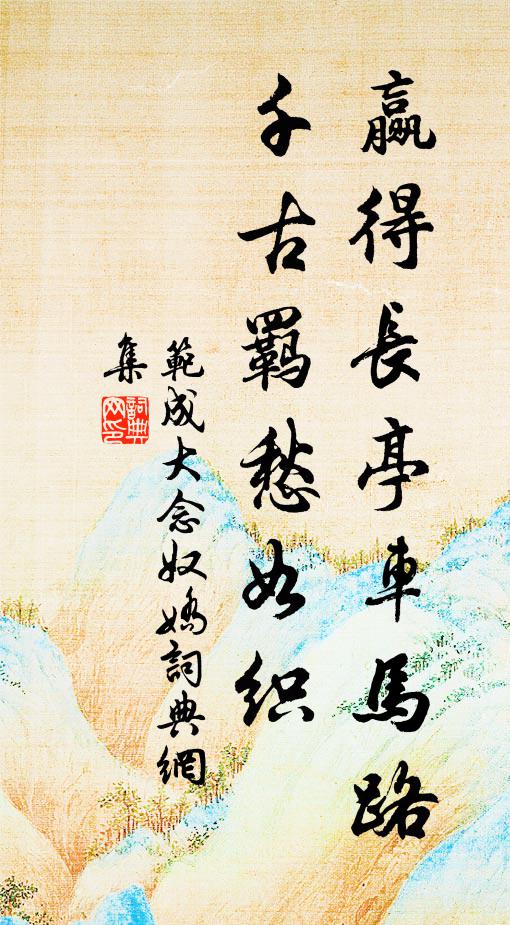 贏得長亭車馬路
千古羁愁如织
範成大念奴嬌詞典網
集
詞典
网印